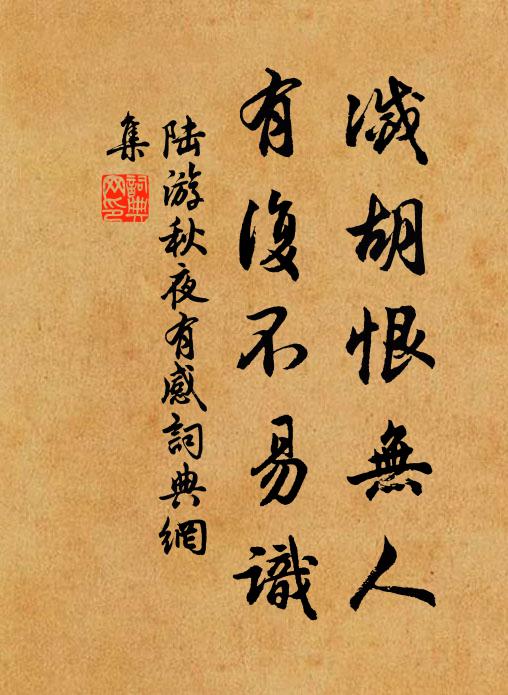 滅胡恨無人
有復不易識
陸游秋夜有感詞典網
集
詞典
网印